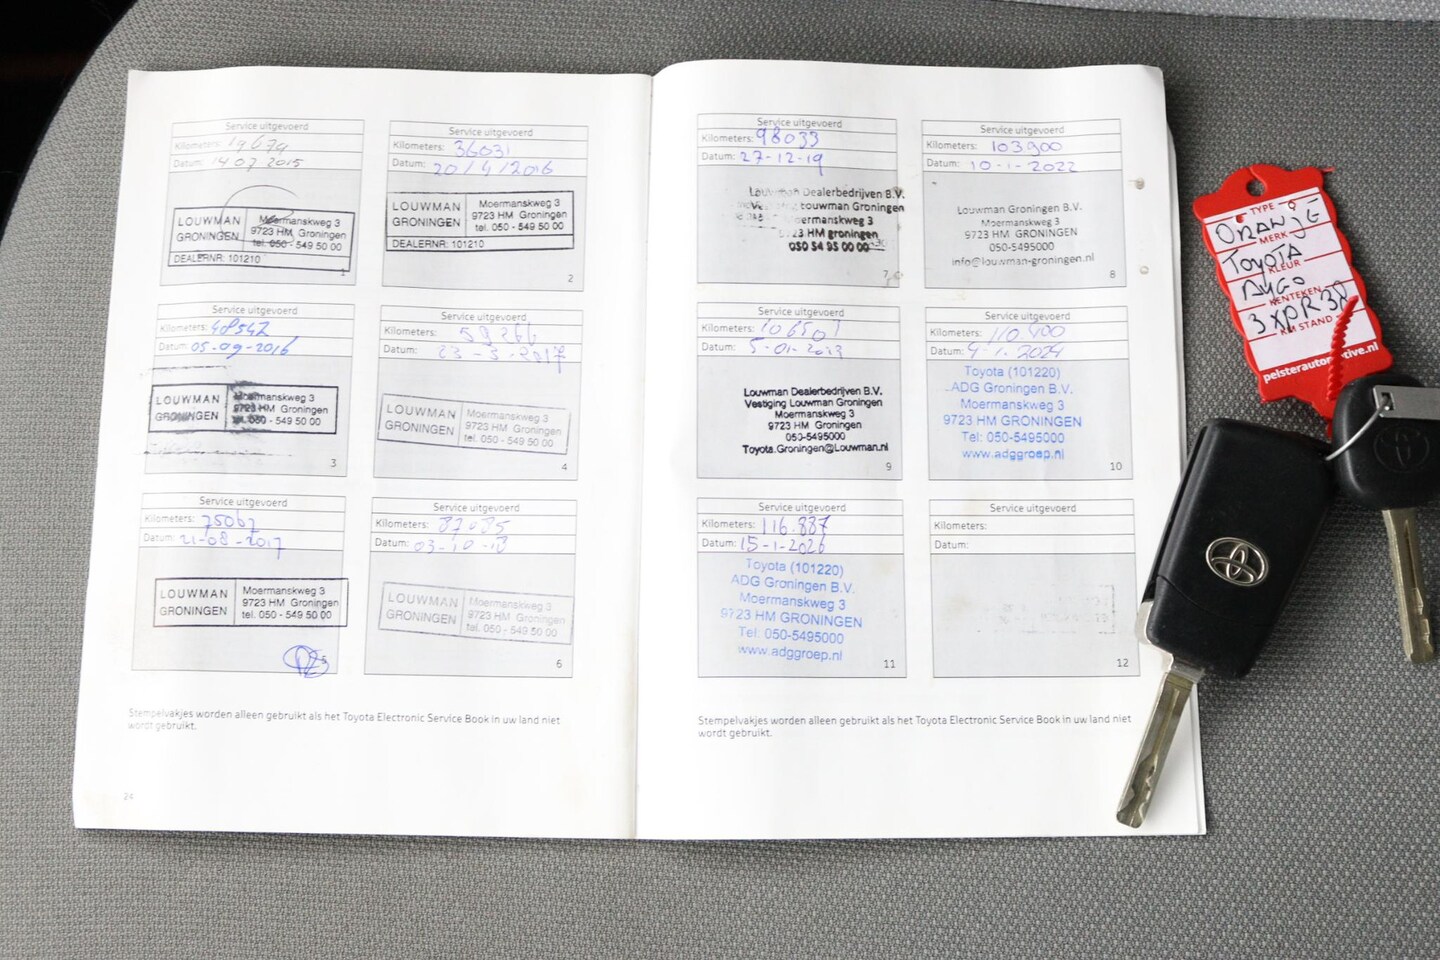 Service uitgevoerd
Kilometers: 19679
Datum: 14 07 2015
LOUWMAN GRONINGEN
Moermanskweg 3
9723 HM Groningen
tel. 050 - 549 50 00
DEALERNR: 101210
1
Service uitgevoerd
Kilometers: 36031
Datum: 20/4/2016
LOUWMAN GRONINGEN
Moermanskweg 3
9723 HM Groningen
tel. 050 - 549 50 00
DEALERNR: 101210
2
Service uitgevoerd
Kilometers: 48542
Datum: 05-09-2016
LOUWMAN GRONINGEN
Moermanskweg 3
9723 HM Groningen
tel. 050 - 549 50 00
3
Service uitgevoerd
Kilometers: 59266
Datum: 23-3-2017
LOUWMAN GRONINGEN
Moermanskweg 3
9723 HM Groningen
tel. 050 - 549 50 00
4
Service uitgevoerd
Kilometers: 75067
Datum: 21-08-2017
LOUWMAN GRONINGEN
Moermanskweg 3
9723 HM Groningen
tel. 050 - 549 50 00
5
Service uitgevoerd
Kilometers: 87085
Datum: 03-10-18
LOUWMAN GRONINGEN
Moermanskweg 3
9723 HM Groningen
tel. 050 - 549 50 00
6
Stempelvakjes worden alleen gebruikt als het Toyota Electronic Service Book in uw land niet
wordt gebruikt.
24
Service uitgevoerd
Kilometers: 98033
Datum: 27-12-19
Louwman Dealerbedrijven B.V.
Louwman Groningen
Moermanskweg 3
9723 HM groningen
050 54 95 00 00
7
Service uitgevoerd
Kilometers: 103900
Datum: 10-1-2022
Louwman Groningen B.V.
Moermanskweg 3
9723 HM GRONINGEN
050-5495000
info@louwman-groningen.nl
8
Service uitgevoerd
Kilometers: 106501
Datum: 5-01-2023
Louwman Dealerbedrijven B.V.
Vestiging Louwman Groningen
Moermanskweg 3
9723 HM Groningen
050-5495000
Toyota.Groningen@Louwman.nl
9
Service uitgevoerd
Kilometers: 110400
Datum: 4-1-2024
Toyota (101220)
ADG Groningen B.V.
Moermanskweg 3
9723 HM GRONINGEN
Tel: 050-5495000
www.adggroep.nl
10
Service uitgevoerd
Kilometers: 116.837
Datum: 15-1-2026
Toyota (101220)
ADG Groningen B.V.
Moermanskweg 3
9723 HM GRONINGEN
Tel: 050-5495000
www.adggroep.nl
11
Service uitgevoerd
Kilometers:
Datum:
12
Stempelvakjes worden alleen gebruikt als het Toyota Electronic Service Book in uw land niet
wordt gebruikt.
TYPE
ORANJE
MERK
TOYOTA
KLEUR
AYGO
KENTEKEN
3XPR38
KM STAND
pelsterautomotive.nl